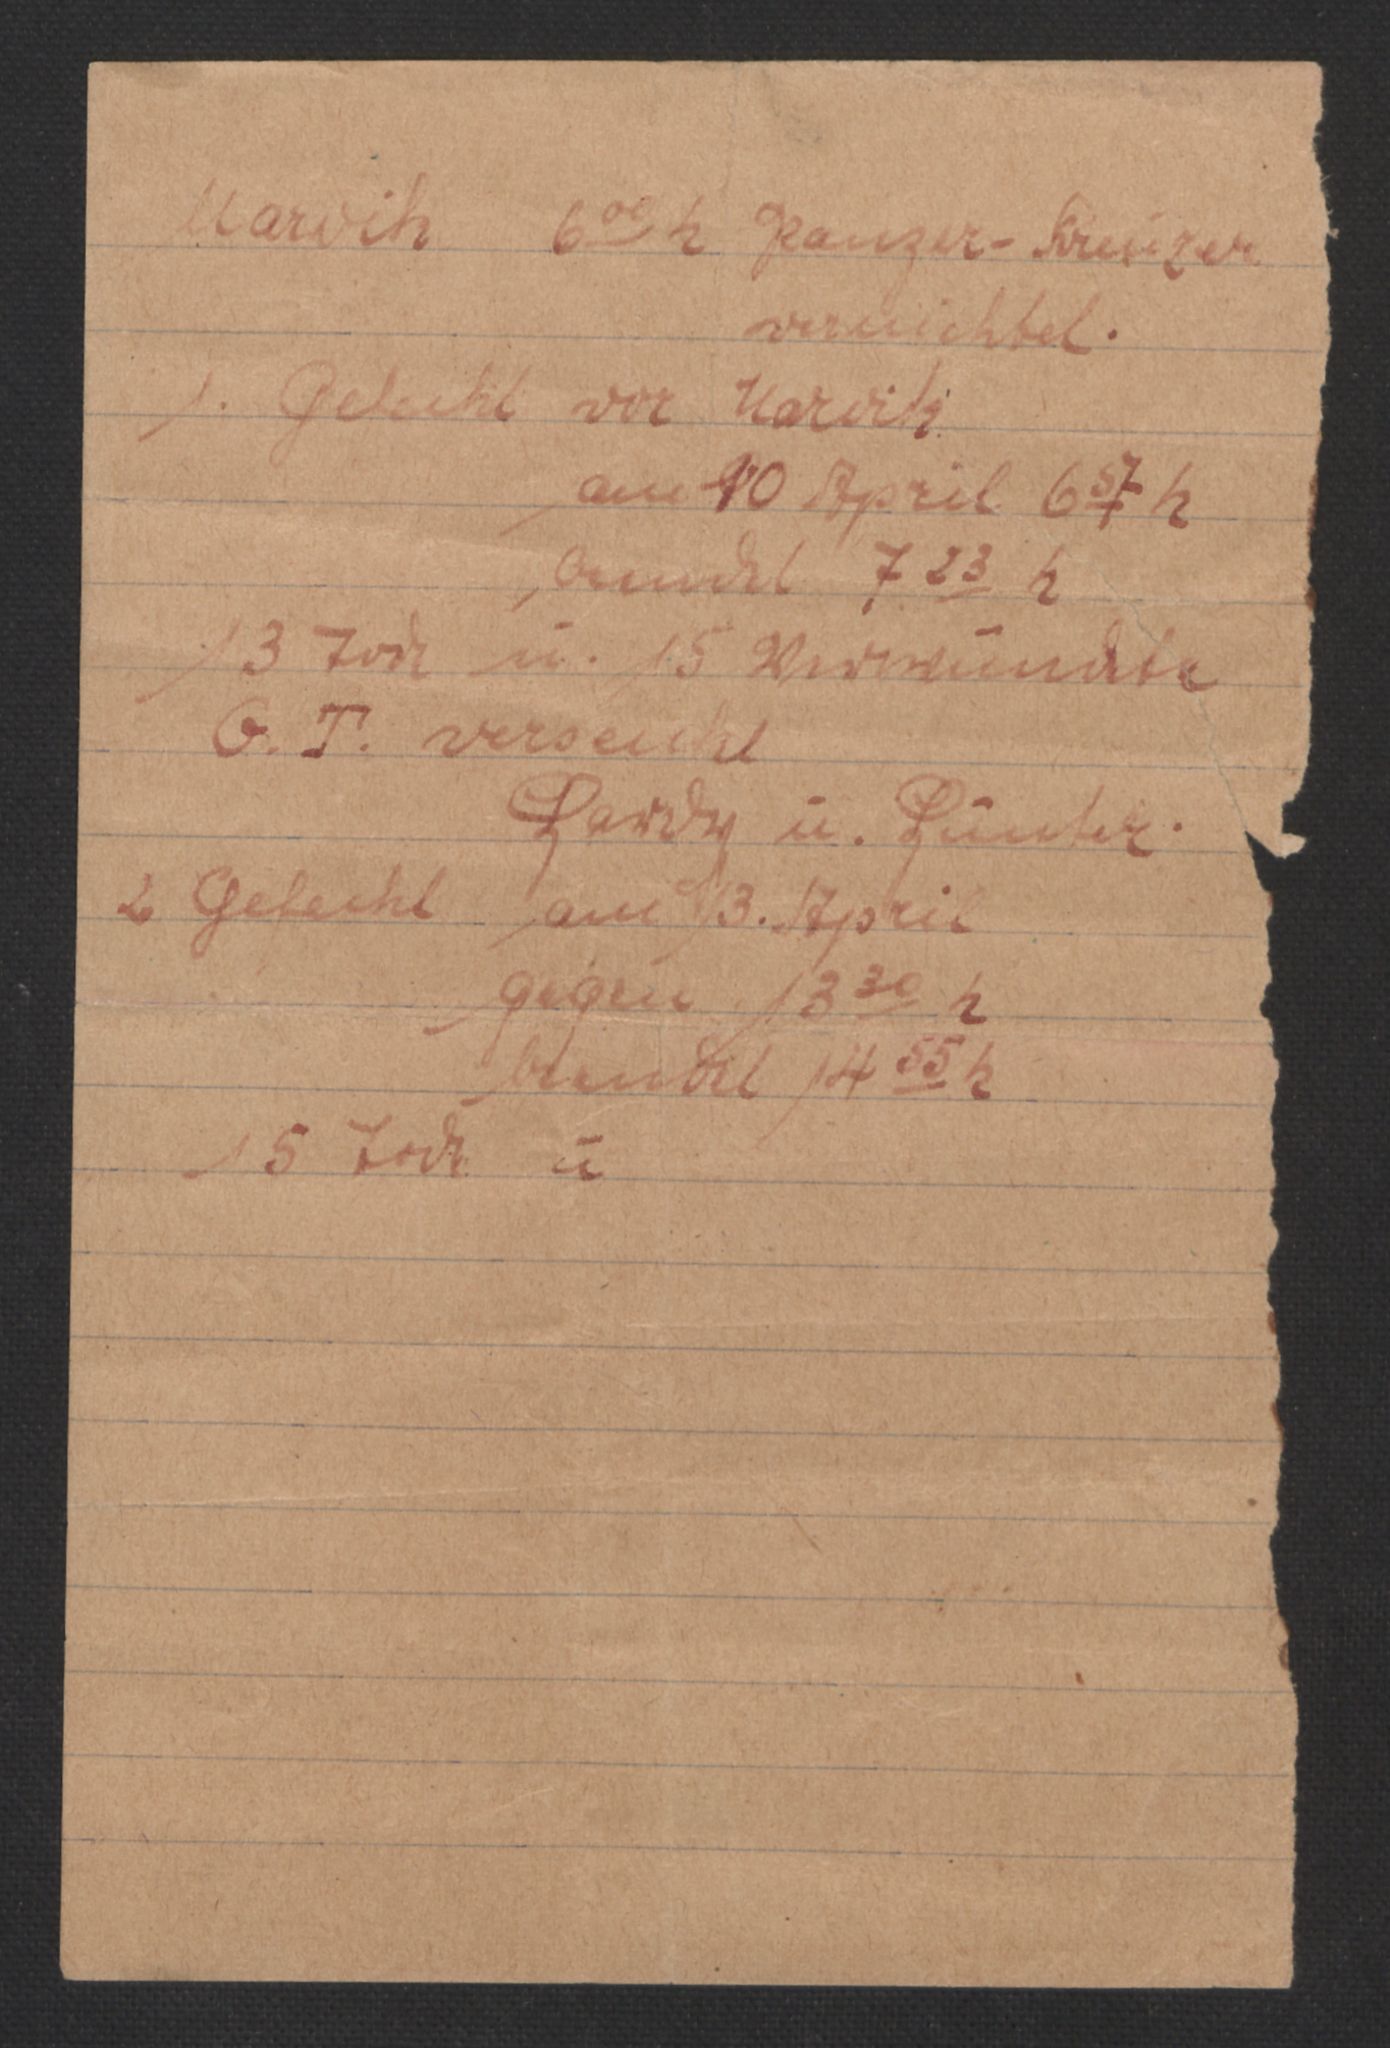 Narvik 6⁰⁰ h Panzer-Kreuzer
vernichtet.
1. Gefecht vor Narvik
am 10 April 6⁵⁷ h
beendet 7²³ h
13 Tode u. 15 Verwundete
G. T. versenkt
Hardy u. Hunter.
2 Gefecht am 13. April
gegen 13³⁰ h
beendet 14⁵⁵ h
15 Tode u